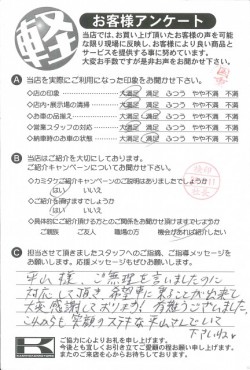 軽
お客様アンケート
当店では、お買い上げ頂いたお客様の声を可能
な限り現場に反映し、お客様により良い商品と
サービスを提供する事に努めています。
大変お手数ですが是非お声をお聞かせ下さい。
A 当店を実際にご利用になった印象をお聞かせ下さい。
◇店の印象 大満足 満足 ふつう やや不満 不満
◇店内・展示場の清掃 大満足 満足 ふつう やや不満 不満
◇お車の品揃え 大満足 満足 ふつう やや不満 不満
◇営業スタッフの対応 大満足 満足 ふつう やや不満 不満
◇納車時のお車の状態 大満足 満足 ふつう やや不満 不満
B 当店はご紹介を大切にしております。
ご紹介キャンペーンについてお聞かせ下さい。
◇カミタウご紹介キャンペーンのご説明はありましたでしょうか
はい いいえ
◇ご紹介を頂けますでしょうか
はい いいえ
◇具体的にご紹介頂ける方とのご関係をお聞かせ頂けますでしょうか
ご親族 ご友人 職場の方 機会があれば紹介したい
C 担当させて頂きましたスタッフへのご指摘、ご指導メッセージを
お願いします。応援メッセージもぜひお願いします。
平山様、ご無理を言いましたのに
対応して頂き、希望車に乗ることが出来て
大変感謝しております。有難うございました。
これからも笑顔のステキな平山さんでいて
下さいね
ご協力に心よりお礼申し上げます。
今後とも宜しくお引き立てご愛顧の程お願い申し上げます。
またのご来店を心からお待ちしております。